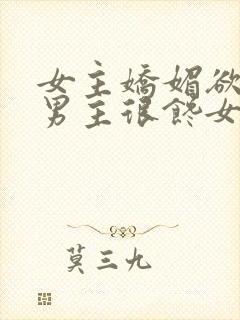 女主嬌媚欲
男主很馋女
莫三九